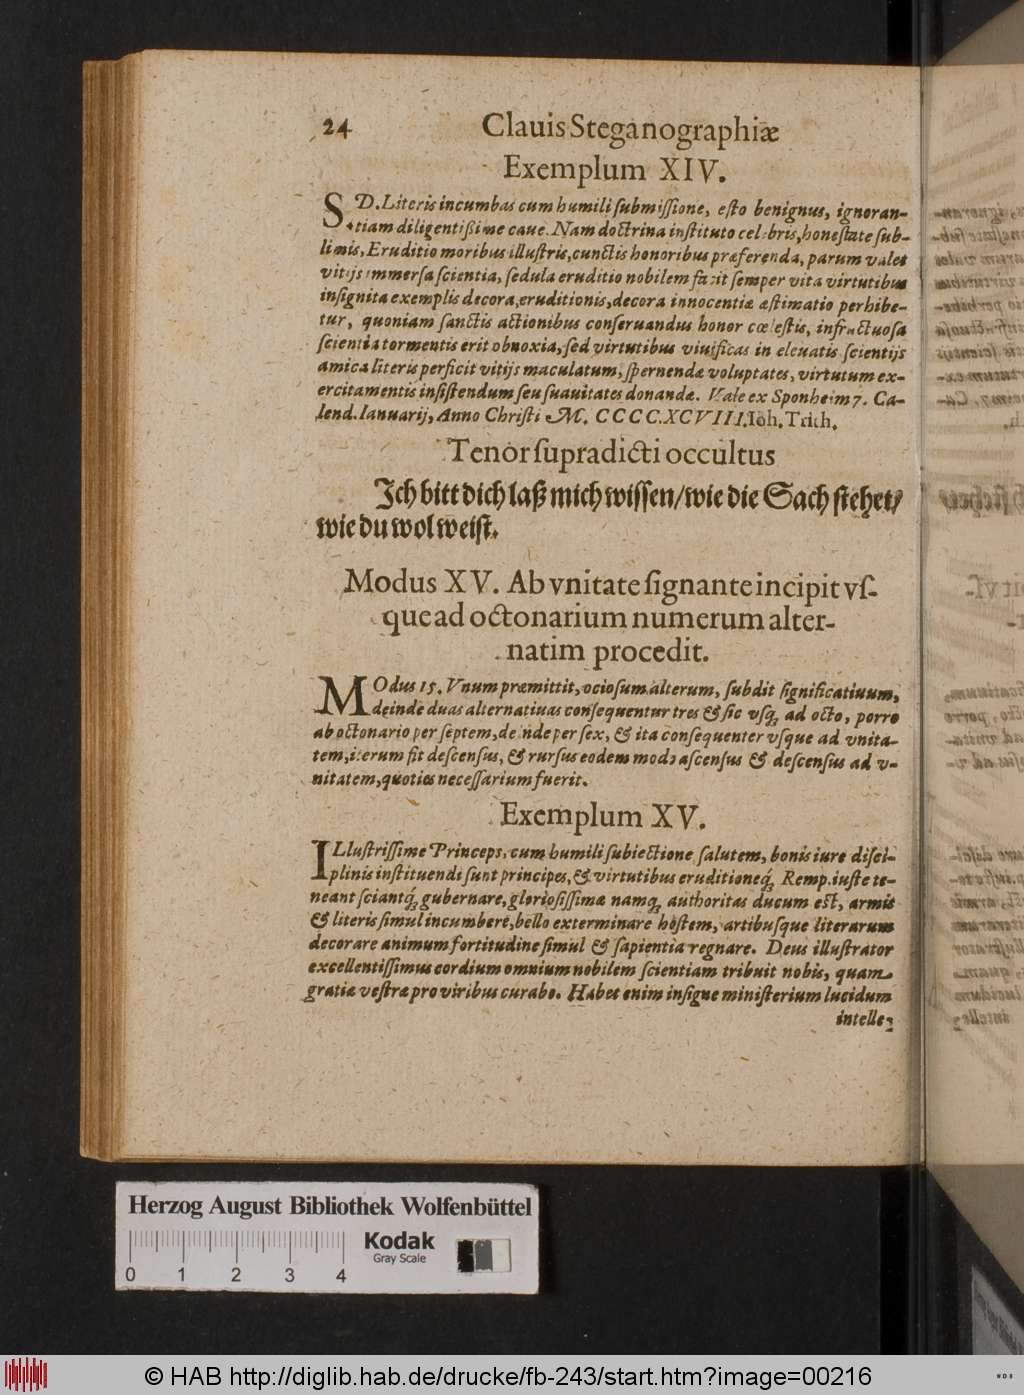 24 Clauis Steganographiæ
Exemplum XIV.
S D. Literis incumbas cum humili ſubmiſſione, eſto benignus, ignoran-
tiam diligentißime caue. Nam doctrina inſtituto celebris, honeſtate ſub-
limis, Eruditio moribus illuſtris, cunctis honoribus præferenda, parum valet
vitijs immerſa ſcientia, ſedula eruditio nobilem facit ſemper vita virtutibus
inſignita exemplis decora, eruditionis, decora innocentiæ æſtimatio perhibe-
tur, quoniam ſanctis actionibus conſeruandus honor cœleſtis, infructuoſa
ſcientia tormentis erit obnoxia, ſed virtutibus viuificas in eleuatis ſcientijs
amica literis perficit vitijs maculatum, ſpernendæ voluptates, virtutum ex-
ercitamentis inſiſtendum ſeu ſuauitates donandæ. Vale ex Sponheim 7. Ca-
lend. Ianuarij, Anno Chriſti M. CCCC.XCVIII. Ioh. Trith.
Tenor ſupradicti occultus
Ich bitt dich laß mich wiſſen/ wie die Sach ſtehet/
wie du wol weiſt.
Modus XV. Ab vnitate ſignante incipit vſ-
que ad octonarium numerum alter-
natim procedit.
MOdus 15. Vnum præmittit, ocioſum alterum, ſubdit ſignificatiuum,
deinde duas alternatiuas conſequentur tres & ſic vſq́; ad octo, porro
ab octonario per ſeptem, deinde per ſex, & ita conſequenter vſque ad vnita-
tem, iterum fit deſcenſus, & rurſus eodem modo aſcenſus & deſcenſus ad v-
nitatem, quoties neceſſarium fuerit.
Exemplum XV.
ILluſtriſſime Princeps, cum humili ſubiectione ſalutem, bonis iure diſci-
plinis inſtituendi ſunt principes, & virtutibus eruditioneq́; Remp. iuſte te-
neant ſciantq́; gubernare, glorioſiſſimæ namq; authoritas ducum eſt, armis
& literis ſimul incumbere, bello exterminare hoſtem, artibuſque literarum
decorare animum fortitudine ſimul & ſapientia regnare. Deus illuſtrator
excellentiſſimus cordium omnium nobilem ſcientiam tribuit nobis, quam
gratiæ veſtræ pro viribus curabo. Habet enim inſigne miniſterium lucidum
intelle-
Herzog August Bibliothek Wolfenbüttel
Kodak
Gray Scale
0 1 2 3 4
© HAB http://diglib.hab.de/drucke/fb-243/start.htm?image=00216